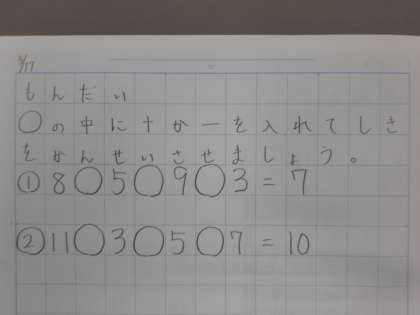 5/17
もんだい
○の中に十か一を入れてしき
をかんせいさせましょう。
① 8○5○9○3=7
② 11○3○5○7=10